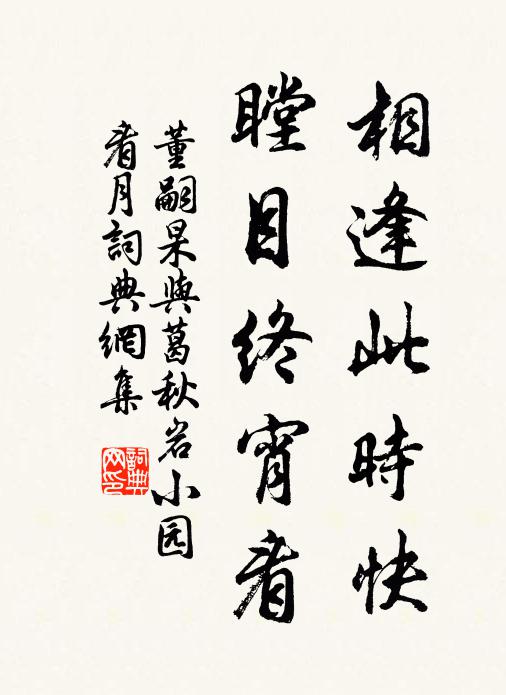 相逢此時快
瞠目終宵看
董嗣杲與葛秋岩小园
看月詞典網集
詞典网印